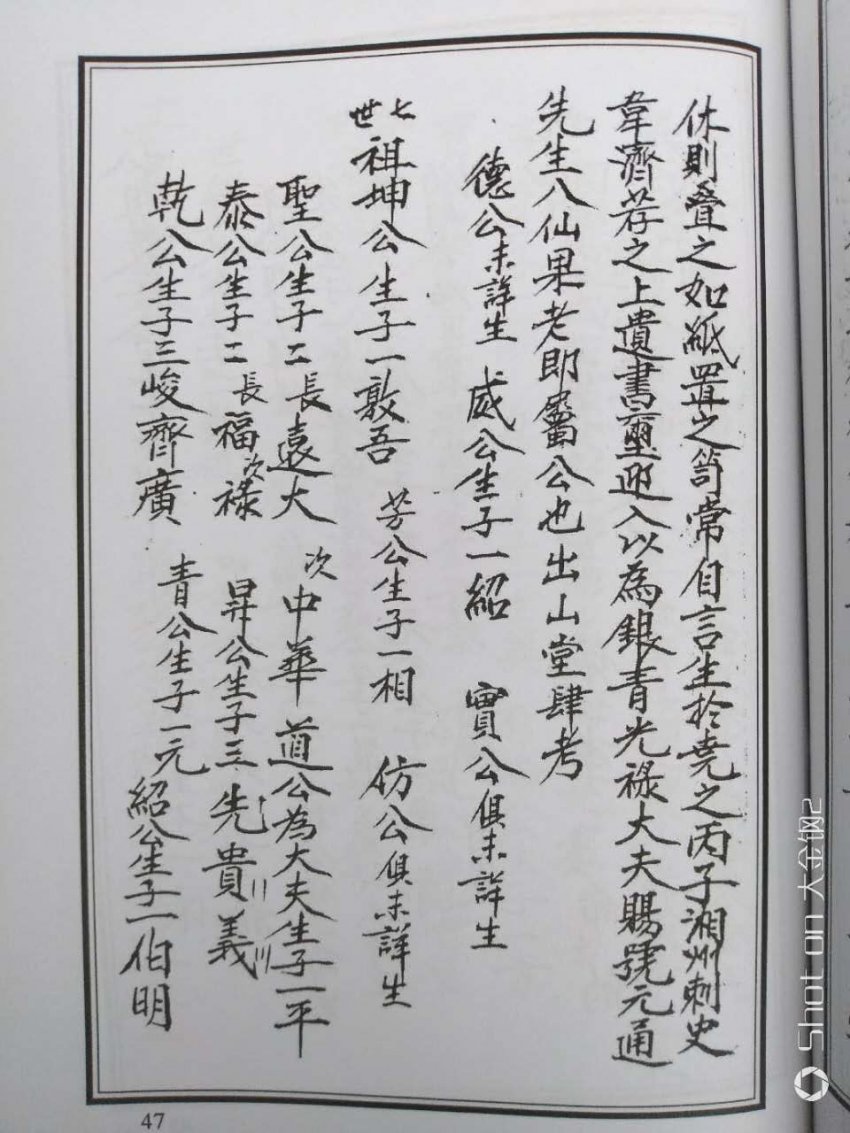 休則疊之如紙置之笥常自言生於堯之丙子湘州刺史
韋濟荐之上遺書璽迎入以為銀青光祿大夫賜號元通
先生八仙果老即屬公也出山堂肆考
德公未詳生 威公生子一紹 實公俱未詳生
七世祖坤公生子一敦吾 芳公生子一相 仿公俱未詳生
聖公生子二長遠大 次中華 道公為大夫生子一平
泰公生子二長福次祿 昇公生子三先貴義
乾公生子三峻齊廣 青公生子一元 紹公生子一伯明
47
Shot on 大金钢2